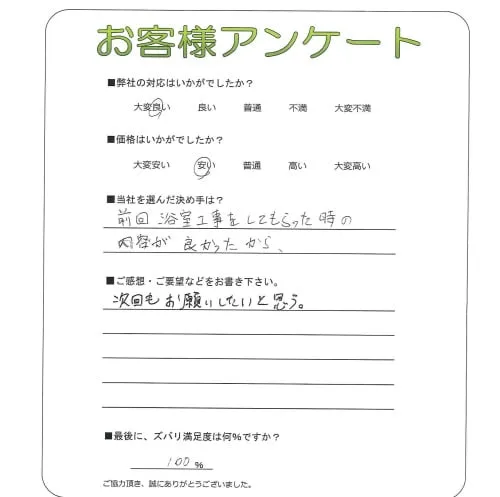 お客様アンケート
■弊社の対応はいかがでしたか？
大変良い 良い 普通 不満 大変不満
■価格はいかがでしたか？
大変安い 安い 普通 高い 大変高い
■当社を選んだ決め手は？
前回浴室工事をしてもらった時の
内容が良かったから、
■ご感想・ご要望などをお書き下さい。
次回もお願いしたいと思う。
■最後に、ズバリ満足度は何％ですか？
100 ％
ご協力頂き、誠にありがとうございました。